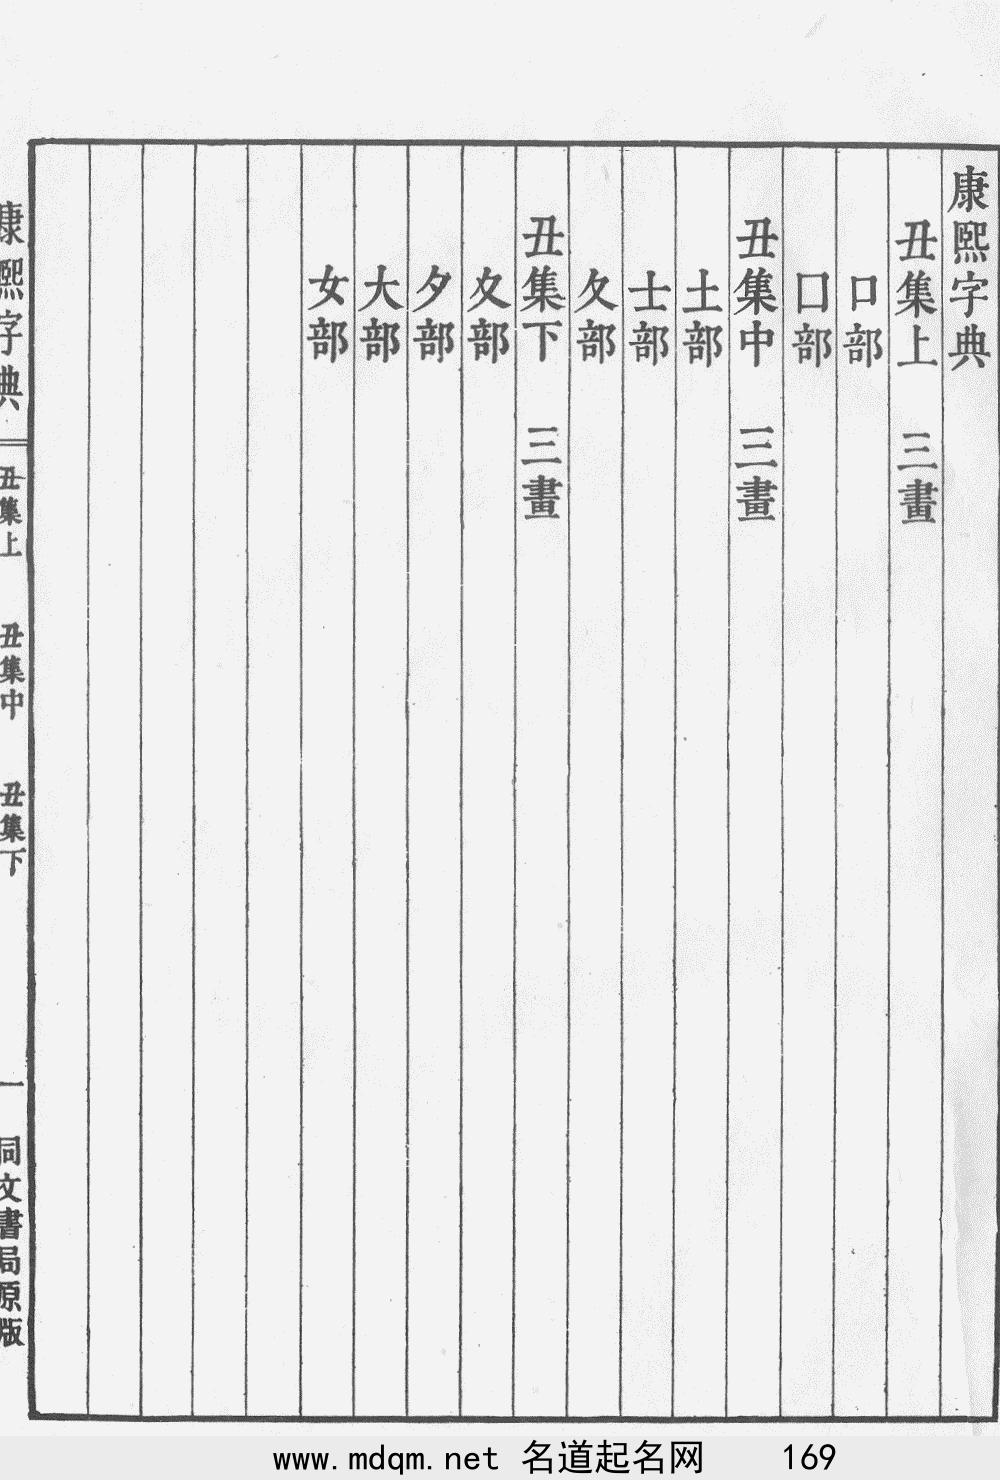 康熙字典
丑集上　三畫
口部
囗部
丑集中　三畫
土部
士部
夂部
丑集下　三畫
夊部
夕部
大部
女部
康熙字典　丑集上　丑集中　丑集下　一　同文書局原版
www.mdqm.net 名道起名网 169